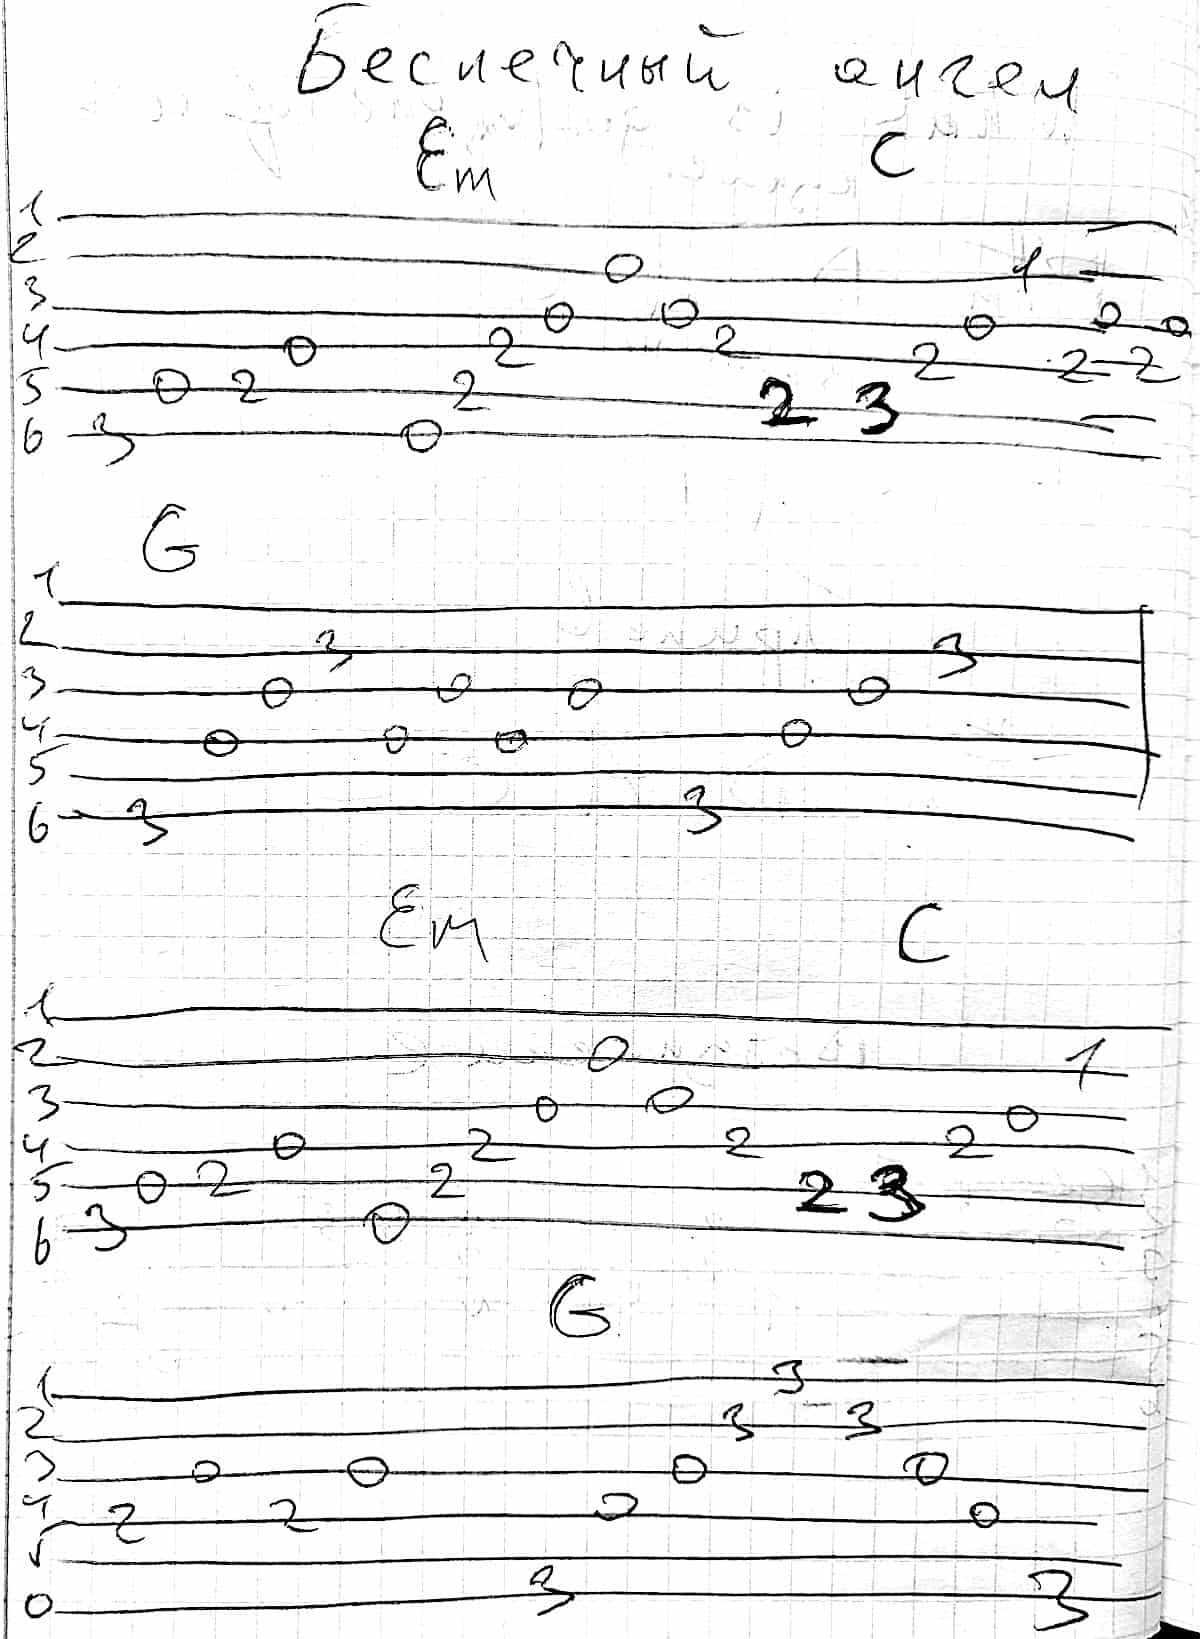 Беспечный ангел
Em C
1
2 0 1
3 0 0 0 0 0
4 0 2 2 2 2 2
5 0 2 2 2 3
6 3 0
G
1
2 3 3
3 0 0 0 0
4 0 0 0 0
5
6 3 3
Em C
1
2 0 1
3 0 0 0
4 0 2 2 2
5 0 2 2 2 3
6 3 0
G
1 3
2 3 3
3 0 0 0 0
4 2 2 0 0
5
6 3 3